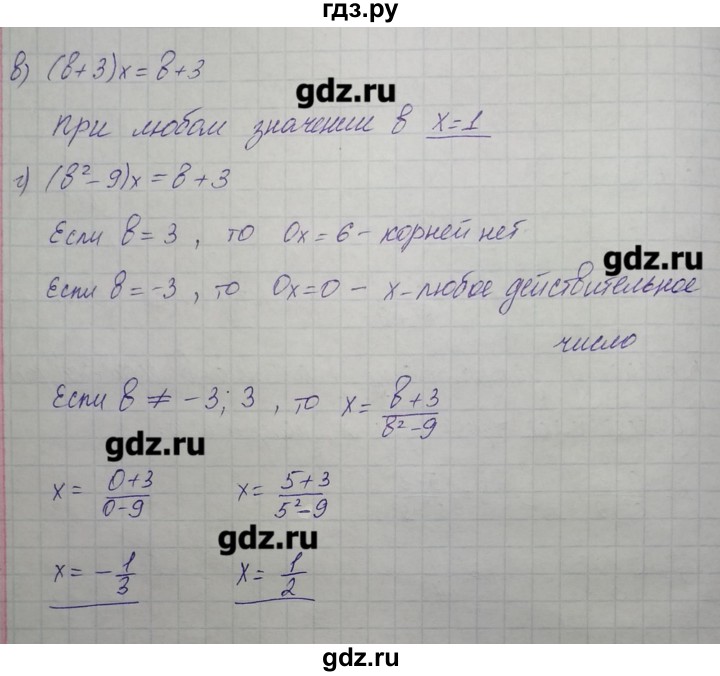 гдз.ру
в) (в+3)х = в+3
gdz.ru
При любом значении в х=1
г) (в²-9)х = в+3
Если в=3, то 0х=6 - корней нет
gdz.ru
Если в=-3, то 0х=0 - х-любое действительное
число
Если в ≠ -3; 3, то х = (в+3)/(в²-9)
gdz.ru
х = (0+3)/(0-9) х = (5+3)/(5²-9)
gdz.ru
х = -1/3 х = 1/2
gdz.ru